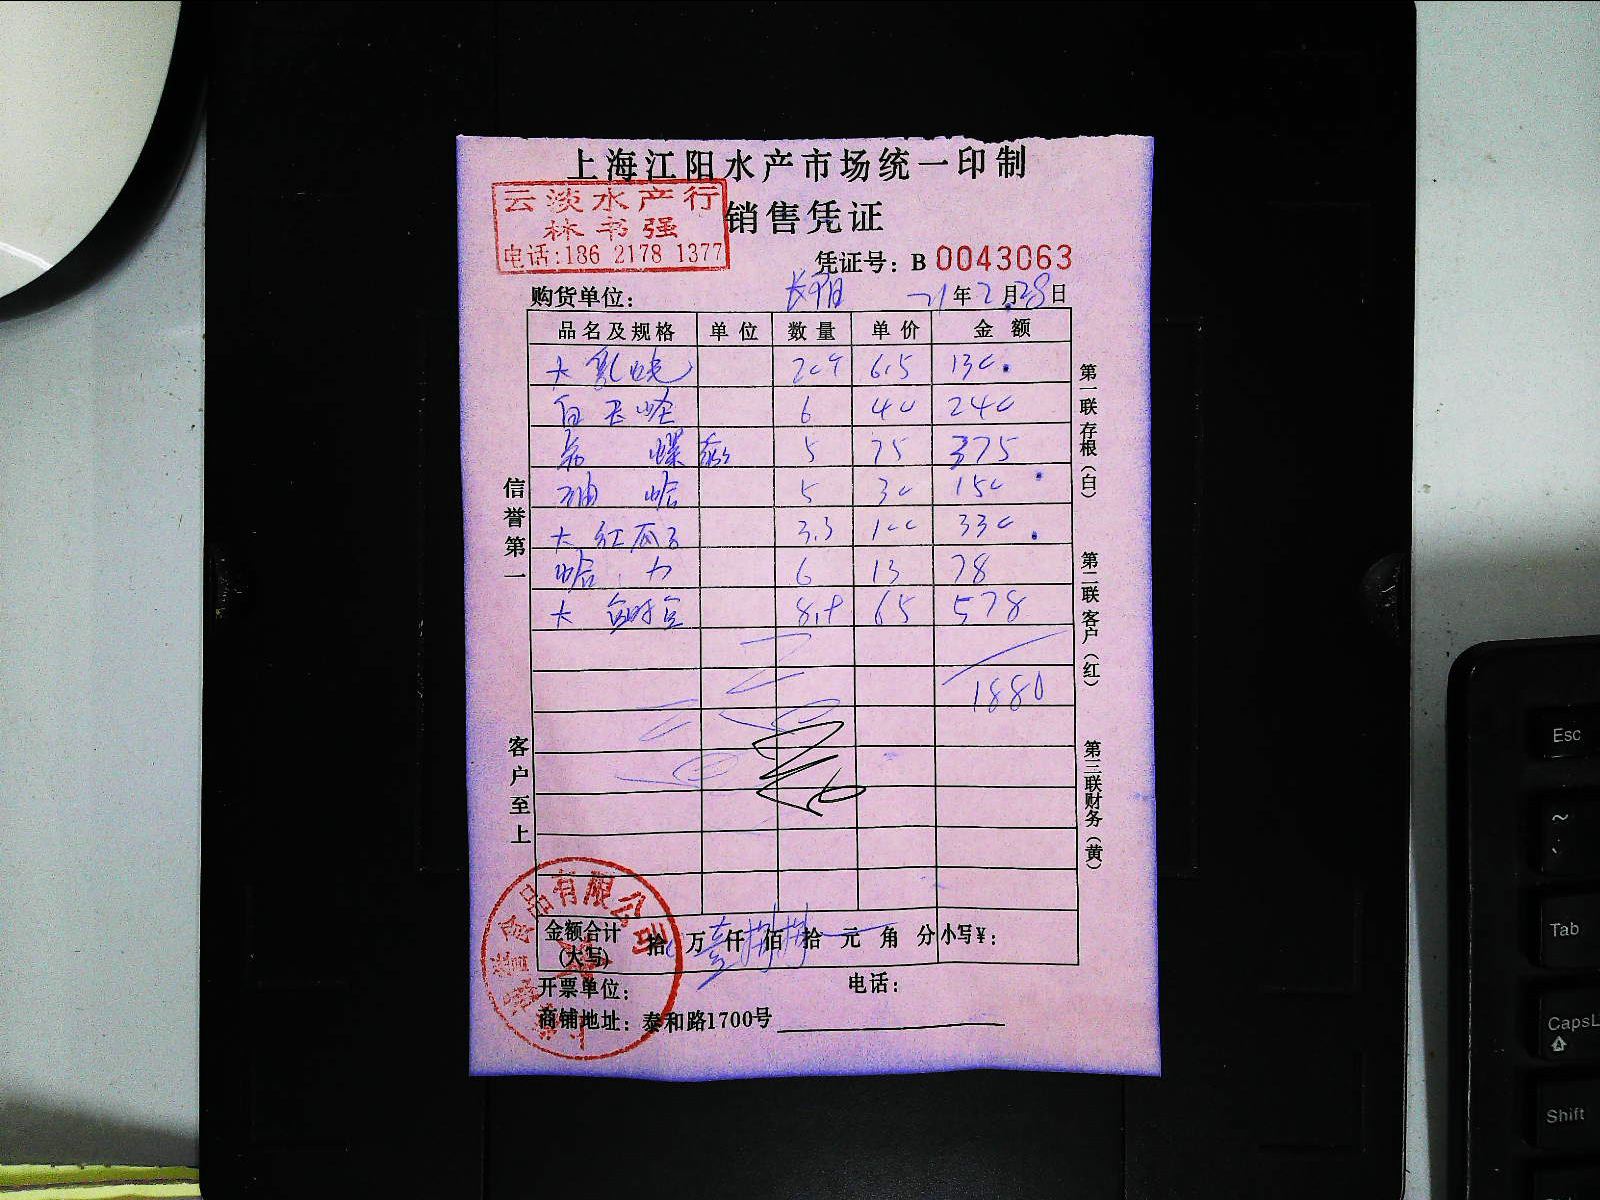 上海江阳水产市场统一印制
云淡水产行
林书强
电话:186 2178 1377
销售凭证
凭证号: B 0043063
购货单位: 21年2月28日
品名及规格 单位 数量 单价 金额
大 6.5 130.
白 6 40 240
5 75 375
油蛤 5 30 150
大红瓜子 3.3 100 330.
蛤 6 13 78
大 65 578
1880
信誉第一
客户至上
第一联存根(白)
第二联客户(红)
第三联财务(黄)
金额合计(大写) 拾 万壹仟捌佰捌拾 元 角 分 小写¥:
开票单位: 电话:
商铺地址: 泰和路1700号
食品有限公司
Esc
~
Tab
CapsL
Shift